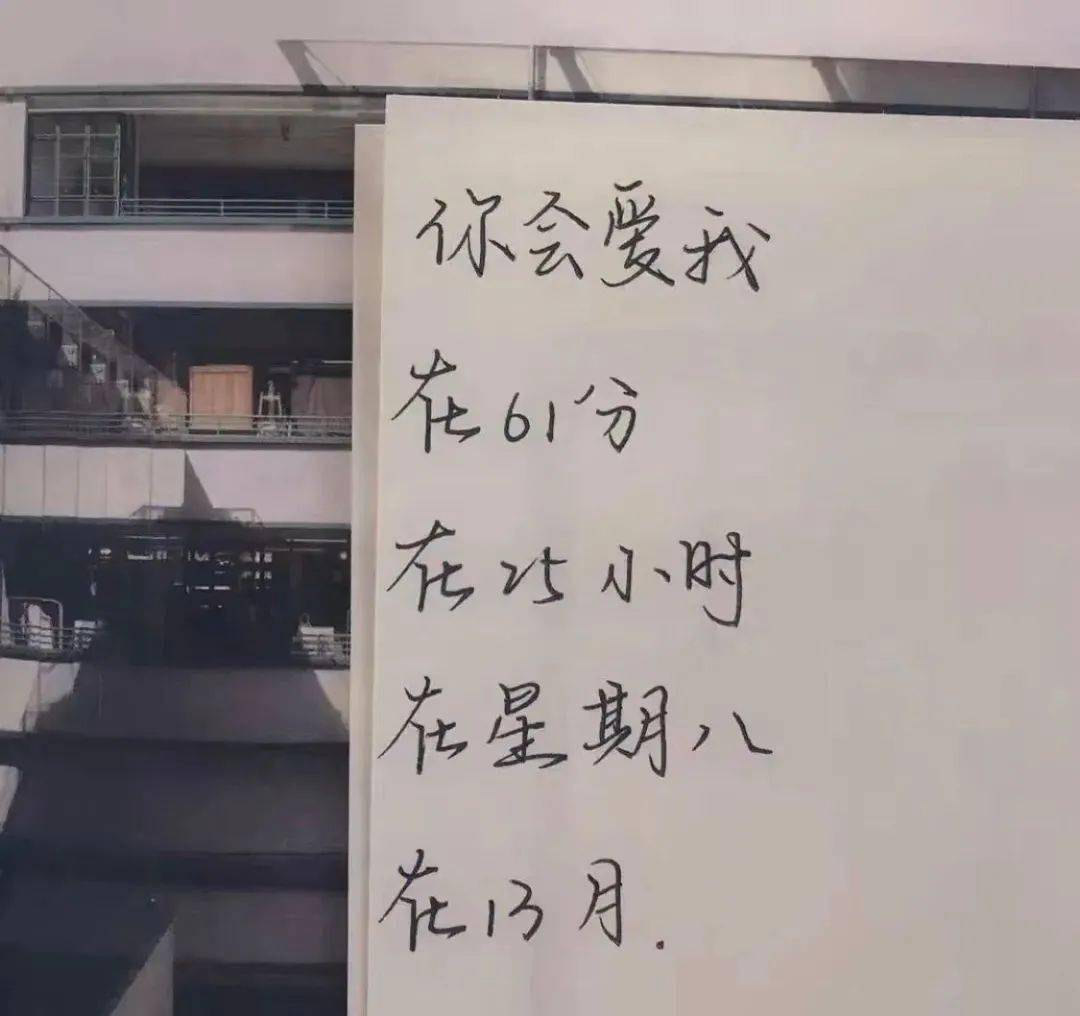 你会爱我
在61分
在25小时
在星期八
在13月.